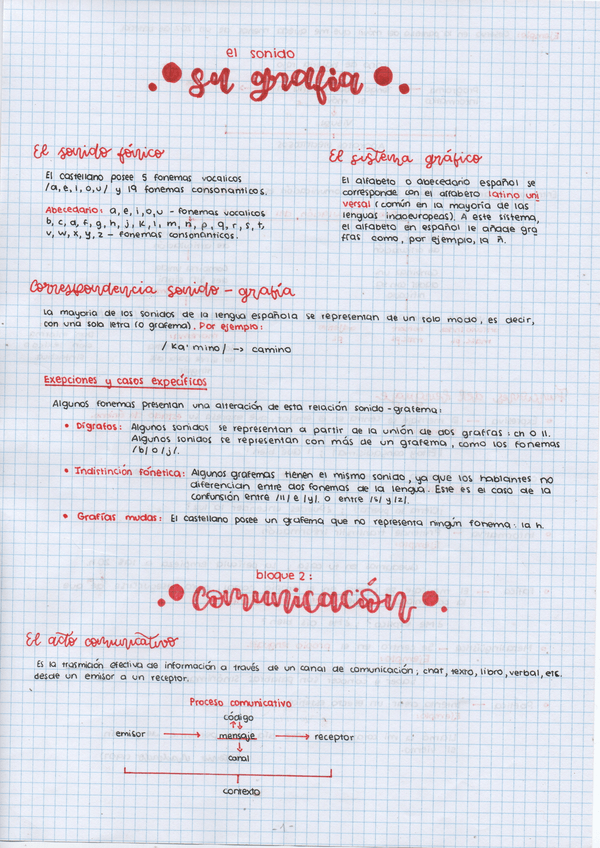 el sonido
su grafia
El sonido fónico
El castellano posee 5 fonemas vocalicos
/a, e, i, o, u/ y 19 fonemas consonamicos.
Abecedario: a, e, i, o, u - fonemas vocalicos
b, c, d, f, g, h, j, k, l, m, n, p, q, r, s, t,
v, w, x, y, z - fonemas consonánticos.
El sistema gráfico
El alfabeto o abecedario español se
corresponde con el alfabeto latino uni
versal (común en la mayoría de las
lenguas indoeuropeas). A este sistema,
el alfabeto en español le añade gra
fías como, por ejemplo, la ñ.
Correspondencia sonido - grafía
La mayoria de los sonidos de la lengua española se representan de un solo modo, es decir,
con una sola letra (o grafema). Por ejemplo:
/ka·mino/ → camino
Exepciones y casos expecíficos
Algunos fonemas presentan una alteración de esta relación sonido-grafema:
• Dígrafos: Algunos sonidos se representan a partir de la unión de dos grafías: ch o ll.
Algunos sonidos se representan con más de un grafema, como los fonemas
/b/ o /j/.
• Indistinción fónética: Algunos grafemas tienen el mismo sonido, ya que los hablantes no
diferencian entre dos fonemas de la lengua. Este es el caso de la
confunsión entre /ll/ e /y/. o entre /s/ y /z/.
• Grafías mudas: El castellano posee un grafema que no representa ningún fonema: la h.
bloque 2:
comunicación
El acto comunicativo
Es la trasmición efectiva de información a través de un canal de comunicación; chat, texto, libro, verbal, etc.
desde un emisor a un receptor.
Proceso comunicativo
código
emisor → mensaje → receptor
canal
contexto
- 1 -